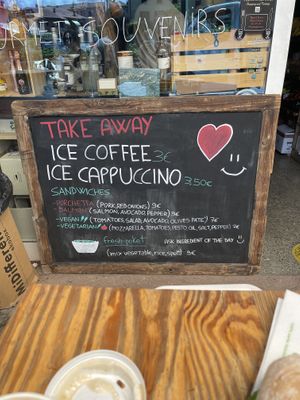 SOUVENIRS
TAKE AWAY
ICE COFFEE 3€
ICE CAPPUCCINO 3,50€
SANDWICHES
-PORCHETTA (PORK, RED ONIONS) 9€
-SALMON (SALMON, AVOCADO, PEPER) 9€
-VEGAN (TOMATOES, SALAD, AVOCADO, OLIVES PATÈ) 7€
-VEGETARIAN (MOZZARELLA, TOMATOES, PESTO, OIL, SALT, PEPER) 7€
fresh poket ASK INGREDIENT OF THE DAY
(mix vegetable, rice, spelt) 9€
MIDIFFER